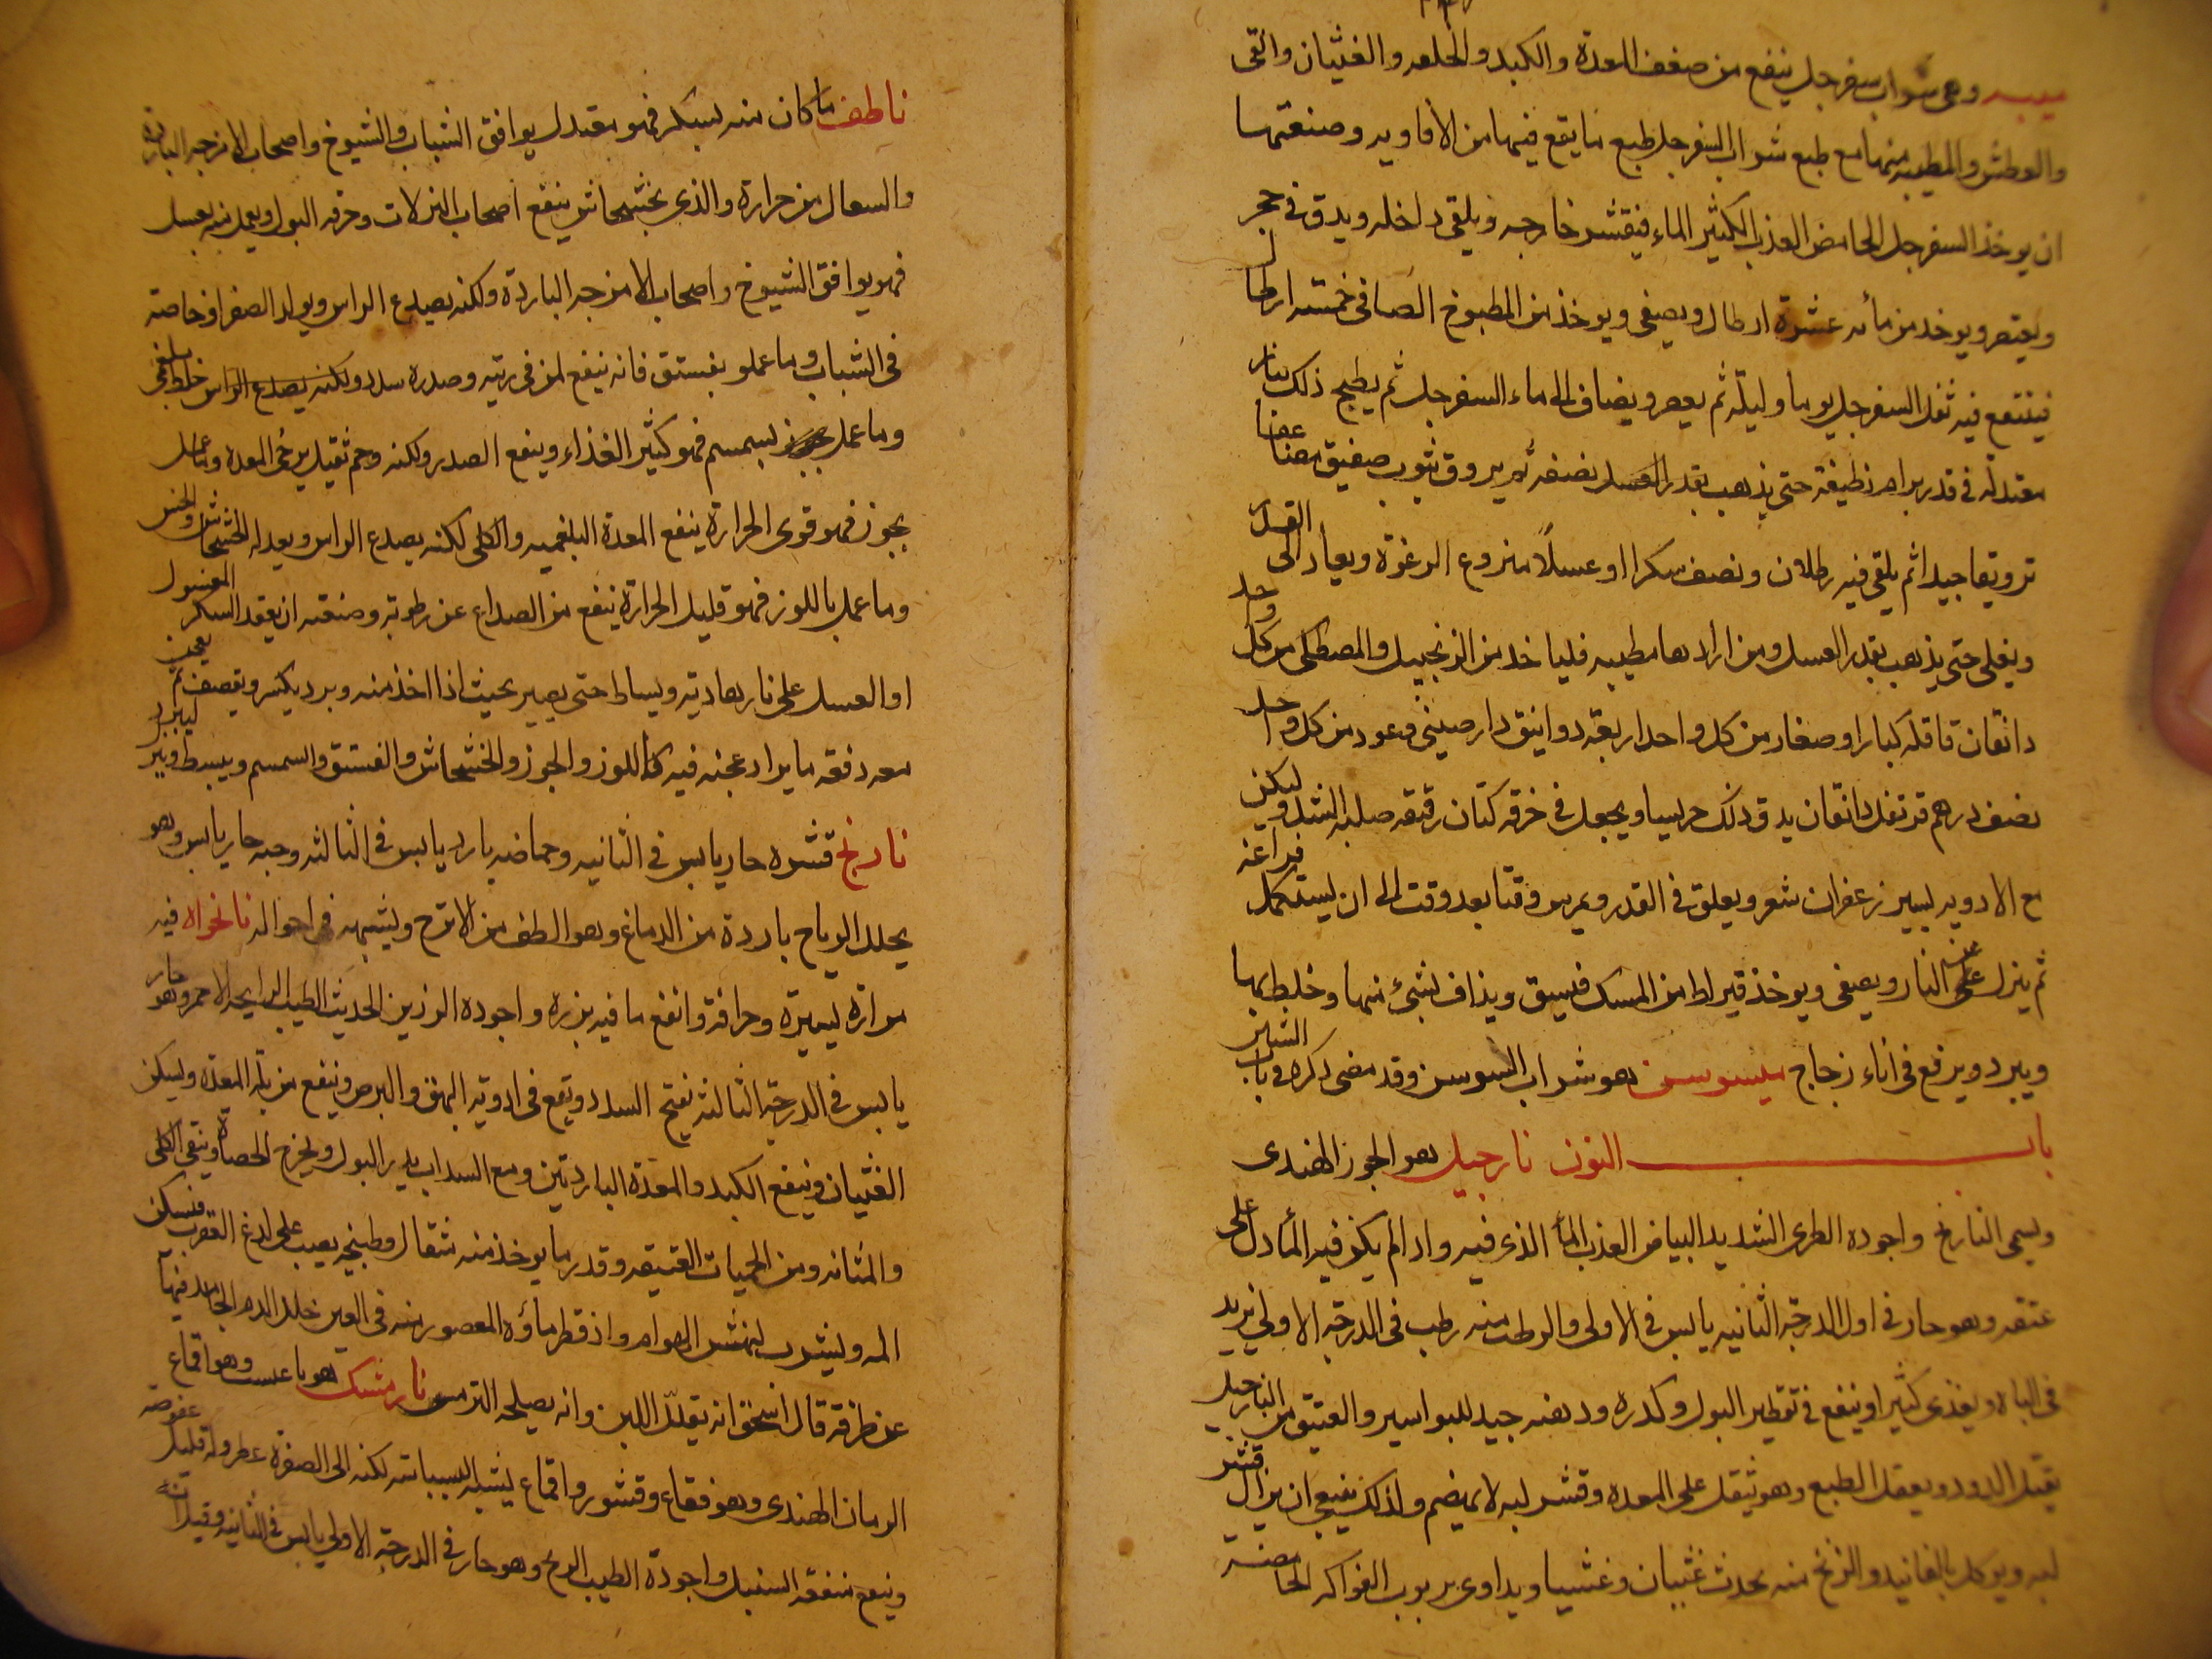 ميبه وهى شراب سفرجل ينفع من ضعف المعدة والكبد والخلفه والغثيان والقى
والعطش والمطيبه منها مع طبع شراب السفرجل طبع ما يقع فيها من الافاويه وصنعتها
ان يوخذ السفرجل الحامض العذب الكثير الماء فيقشر خارجه ويلقى داخله ويدق فى حجر
ويعتصر ويوخذ من مائه عشرة ارطال ويصفى ويوخذ من المطبوخ الصافى خمسه ارطال
فينقع فيه ثفل السفرجل يوما وليلة ثم يعصر ويضاف الى ماء السفرجل ثم يطبخ ذلك بنار
معتدلة فى قدر برام نظيفة حتى يذهب بقدر العسل نصفه ثم يروق بثوب صفيق
ترويقا جيدا ثم يلقى فيه رطلان ونصف سكرا او عسلاً منزوع الرغوة ويعاد الى القدر
ويغلى حتى يذهب بقدر العسل ومن ارادها مطيبه فلياخذ من الزنجبيل والمصطكى من كل واحد
دانقان قاقله كبارا وصغار من كل واحد اربعة دوانيق دارصينى وعود من كل واحد
نصف درهم قرنفل دانقان يدق ذلك جريشا ويجعل فى خرقه كتان رقيقه صلبه الشد وليكن
مع الادويه يسير زعفران شعر ويعلق فى القدر ويمرس وقتا بعد وقت الى ان يستكمل
ثم ينزل عن النار ويصفى ويوخذ قيراط من المسك فيسحق ويذاف بشئ منها وخلط بها
ويبرد ويرفع فى اناء زجاج ميسوسن هو شراب السوسن وقد مضى ذكره فى باب الشين
باب النون نارجيل هو الجوز الهندى
ويسمى النارنج واجوده الطرى الشديد البياض العذب الماء الذى فيه واذا لم يكن فيه الماء دل على
عتقه وهو حار فى اول الدرجة الثانيه يابس فى الاولى والرطب منه رطب فى الدرجة الاولى يزيد
فى الباه ويغذى كثيرا وينفع فى تقطير البول وكدره ودهنه جيد للبواسير والعتيق من النارجيل
يقتل الدود ويعقل الطبع وهو ثقيل على المعدة وقشر لبه لا يهضم ولذلك ينبغى ان يزال قشر
لبه ويوكل بالفانيد والزنخ منه يحدث غثيان وغشيا ويداوى بربوب الفواكه الحامضه
ناطف ما كان منه بسكر فهو معتدل يوافق الشباب والشيوخ واصحاب الامزجه البارده
والسعال من حرارة والذى بخشخاش ينفع اصحاب النزلات وحرقه البول ويعمل منه بعسل
فهو يوافق الشيوخ واصحاب الامزجه الباردة ولكنه يصدع الراس ويولد الصفرا وخاصة
فى الشباب وما عمل بفستق فانه ينفع لمن فى رئيه وصدره سدد ولكنه يصدع الراس
وما عمل بسمسم فهو كثير الغذاء وينفع الصدر ولكنه وخم ثقيل يرخى المعده وما عمل
بجوز فهو قوى الحرارة ينفع المعدة البلغميه والكلى لكنه يصدع الراس ويعدله الخشخاش والخس
وما عمل باللوز فهو قليل الحرارة ينفع من الصداع عن رطوبة وصنعته ان يعقد السكر المغسول
او العسل على نار هادئة ويساط حتى يصير بحيث اذا اخذ منه وبرد يكسر ويقصف ثم يعجن
معه دفعه ما يراد عجنه فيه كاللوز والجوز والخشخاش والفستق والسمسم ويبسط ويبرد
نارنج قشره حار يابس فى الثانيه وحماضه بارد يابس فى الثالثه وحبه حار يابس وهو
يحلل الرياح باردة من الدماغ وهو الطف من الاترج ويشبهه فى احواله نانخواه فيه
مرارة يسيرة وحرافة وانفع ما فيه بزره واجوده الرزين الحديث الطيب الرايحه الاحمر وهو حار
يابس فى الدرجة الثالثة يفتح السدد ويقع فى ادوية البهق والبرص وينفع من بلة المعده ويسكن
الغثيان وينفع الكبد والمعدة الباردتين ومع السداب يدر البول ويخرج الحصاة وينقى الكلى
والمثانه ومن الحميات العتيقه وقدر ما يوخذ منه مثقال وطبيخه يصب على لدغ العقرب فيسكن
المه ويشرب لنهش الهوام واذ قطر ماؤه المعصور منه فى العين حلل الدم الجامد فيها
عن طرفة قال اسحق انه يقلل اللبن وانه يصلحه الترمس نارمشك هو وهو اقماع
الرمان الهندى وهو فقاع وقشور واقماع يشبه البسباسة لكنه الى الصفرة عطر وله قليل عفوصة
وينفع منفعة السنبل واجوده الطيب الريح وهو حار فى الدرجة الاولى يابس فى الثانيه وقيل انه